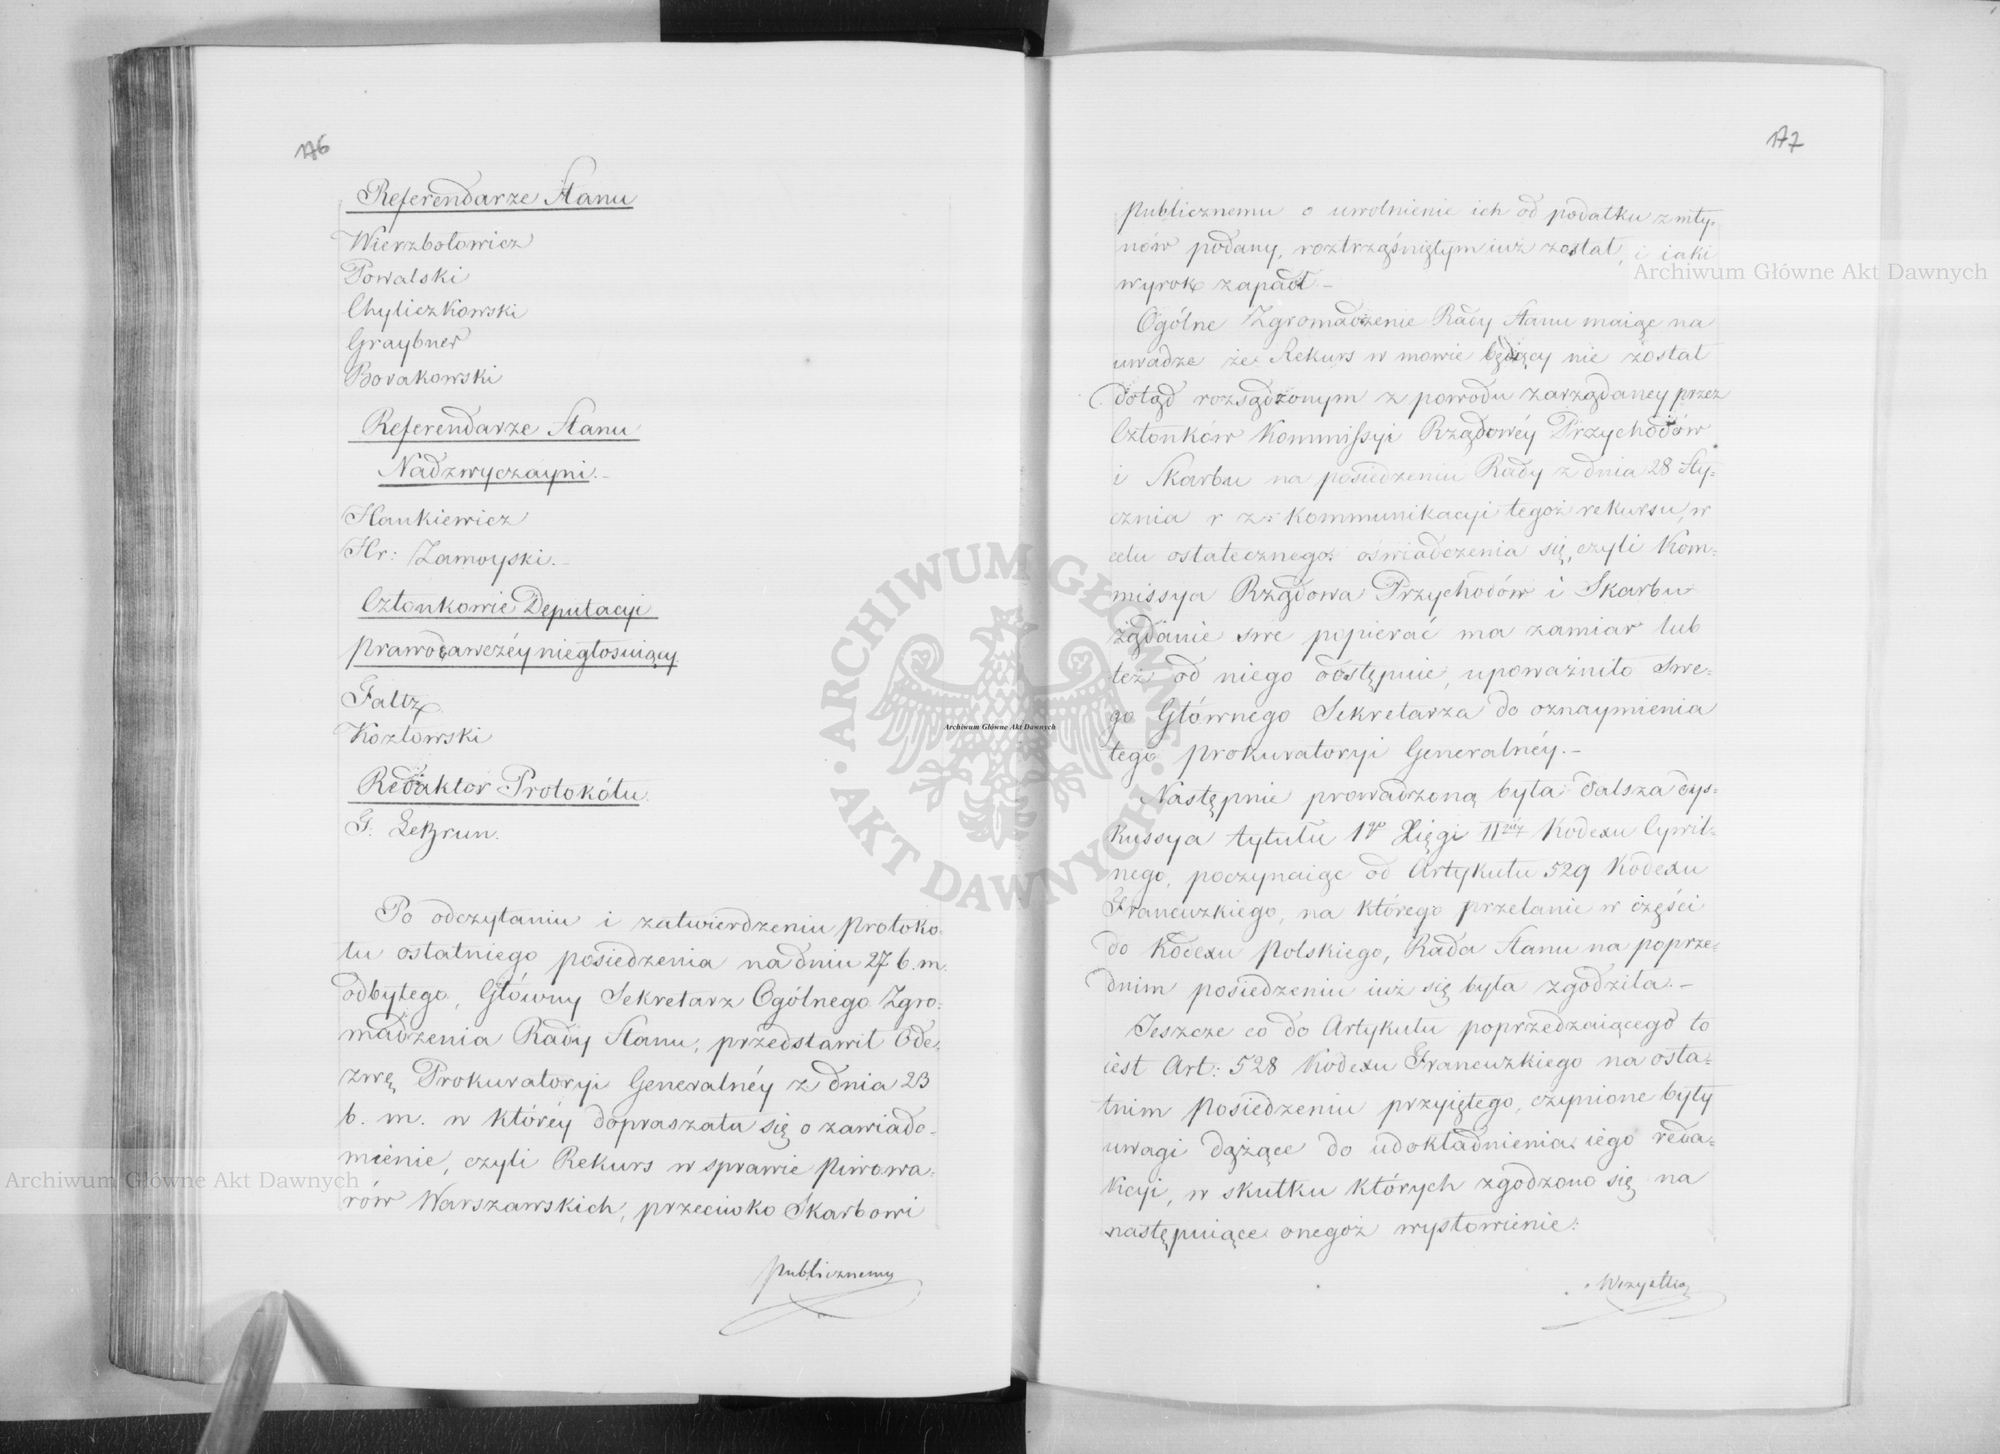 176
Referendarze Stanu
Wierzbołowicz
Powalski
Chyliczkowski
Graybner
Borakowski
Referendarze Stanu
Nadzwyczayni.-
Hankiewicz
Hr: Zamoyski.-
Członkowie Deputacyi
Prawodawczéy niegłosuiący
Faltz
Kozłowski
Redaktor Protokółu.
G. LeBrun.
Po odczytaniu i zatwierdzeniu protoko-
łu ostatniego posiedzenia na dniu 27 b. m.
odbytego, Główny Sekretarz Ogólnego Zgro-
madzenia Rady Stanu, przedstawił Ode-
zwę Prokuratoryi Generalnéy z dnia 23
b. m. w któréy dopraszała się o zawiado-
mienie, czyli Rekurs w sprawie piwowa-
rów Warszawskich, przeciwko Skarbowi
publicznemu
177
publicznemu o uwolnienie ich od podatku z mły-
nów podany, roztrząśniętym iuż został, i iaki
wyrok zapadł.-
Ogólne Zgromadzenie Rady Stanu maiąc na
uwadze że Rekurs w mowie będący nie został
dotąd rozsądzonym z powodu zarządaney przez
Członków Kommissyi Rządowéy Przychodów
i Skarbu na posiedzeniu Rady z dnia 28 Sty-
cznia r z: kommunikacyi tegoż rekursu, w
celu ostatecznego oświadczenia się, czyli Kom-
missya Rządowa Przychodów i Skarbu
żądanie swe popierać ma zamiar lub
też od niego odstępuie, upoważniło Swe-
go Głównego Sekretarza do oznaymienia
tego Prokuratoryi Generalnéy.-
Następnie prowadzoną była dalsza dys-
kussya tytułu 1go Xięgi IIgiéy Kodexu Cywil-
nego, poczynaiąc od Artykułu 529 Kodexu
Francuzkiego, na którego przelanie w części
do Kodexu Polskiego, Rada Stanu na poprze-
dnim posiedzeniu iuż się była zgodziła.-
Jeszcze co do Artykułu poprzedzaiącego to
iest Art: 528 Kodexu Francuzkiego na osta-
tnim posiedzeniu przyiętego, czynione były
uwagi dążące do udokładnienia iego reda-
kcyi, w skutku których zgodzono się na
następuiące onegoż wysłowienie:
Wszystkie
Archiwum Główne Akt Dawnych
Archiwum Główne Akt Dawnych
Archiwum Główne Akt Dawnych
ARCHIWUM GŁÓWNE AKT DAWNYCH